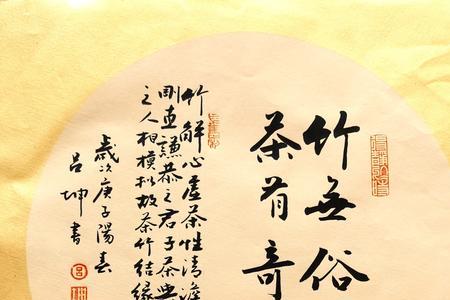 竹無俗
茶有奇
竹解心虛茶性清澹
剛直謙恭之君子茶與
之人相模拟故茶竹結緣
歲次庚子陽春
吕坤書